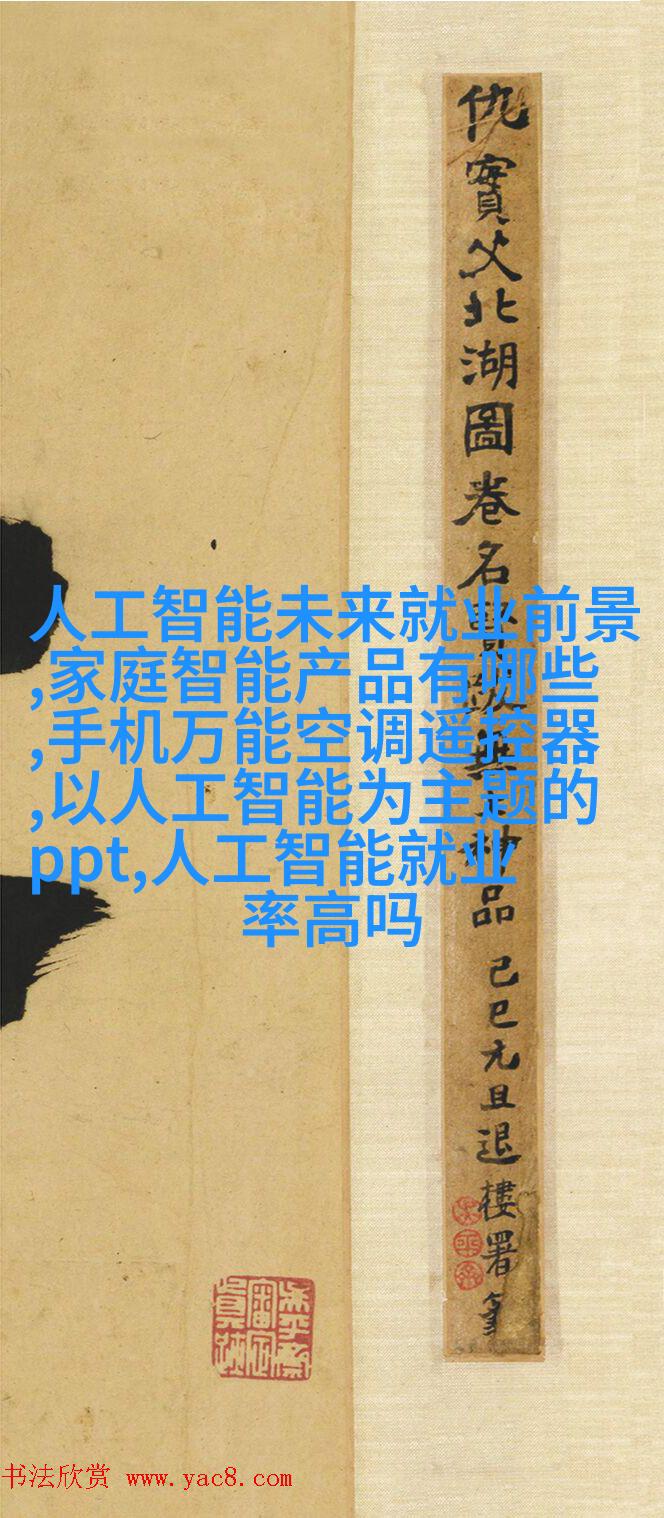 仇實父北湖圖卷名賢無上神品 己巳元旦退樓署
人工智能未来就业前景
,家庭智能产品有哪些
,手机万能空调遥控器
,以人工智能为主题的
ppt,人工智能就业
率高吗
书法欣赏 www.yac8.com